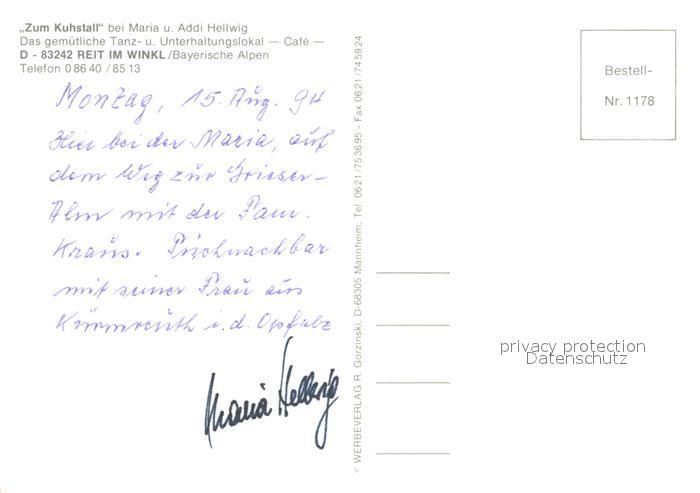 „Zum Kuhstall" bei Maria u. Addi Hellwig
Das gemütliche Tanz- u. Unterhaltungslokal — Café —
D - 83242 REIT IM WINKL/Bayerische Alpen
Telefon 0 86 40 / 85 13
Montag, 15. Aug. 94
Hier bei der Maria, auf
dem Weg zur Grieser-
Alm mit der Fam.
Kraus. Tischnachbar
mit seiner Frau aus
i. d. Opfalz
Maria Hellwig
© WERBEVERLAG R. Gorzinski, D-68305 Mannheim, Tel. 06 21 / 75 36 95 - Fax 06 21 / 74 59 24
Bestell-
Nr. 1178
privacy protection
Datenschutz